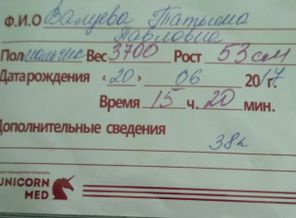 Ф.И.О Валуева Татьяна
Павловна
Пол мальчик Вес 3700 Рост 53 см
Дата рождения «20» 06 2017г.
Время 15 ч. 20 мин.
Дополнительные сведения
38н
UNICORN
MED